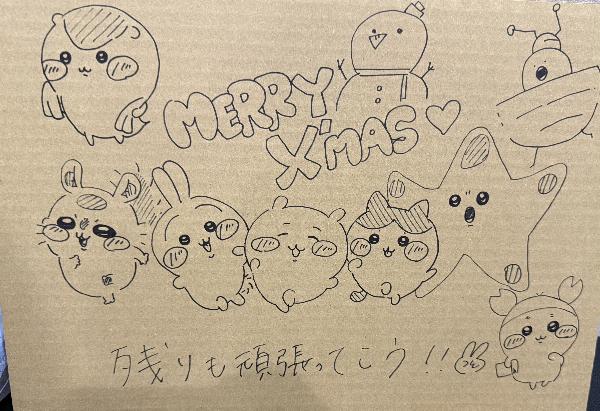 MERRY
X'MAS♡
残りも頑張ってこう!!